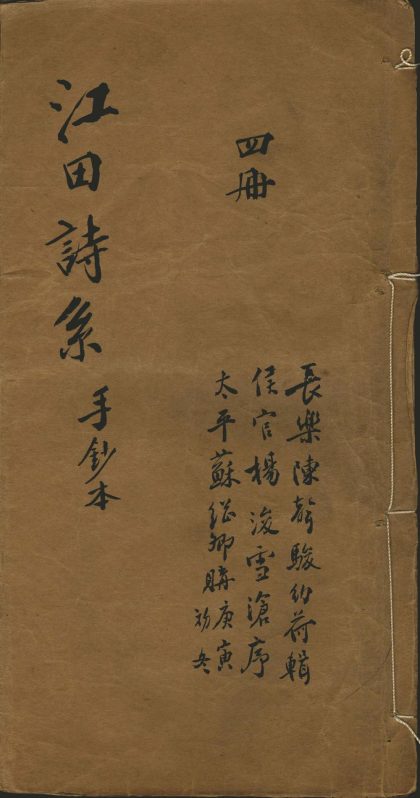 四冊
江田詩系
手鈔本
長樂陳聲駿幼荷輯
侯官楊浚雪滄序
太平蘇繼卿購庚寅
初冬